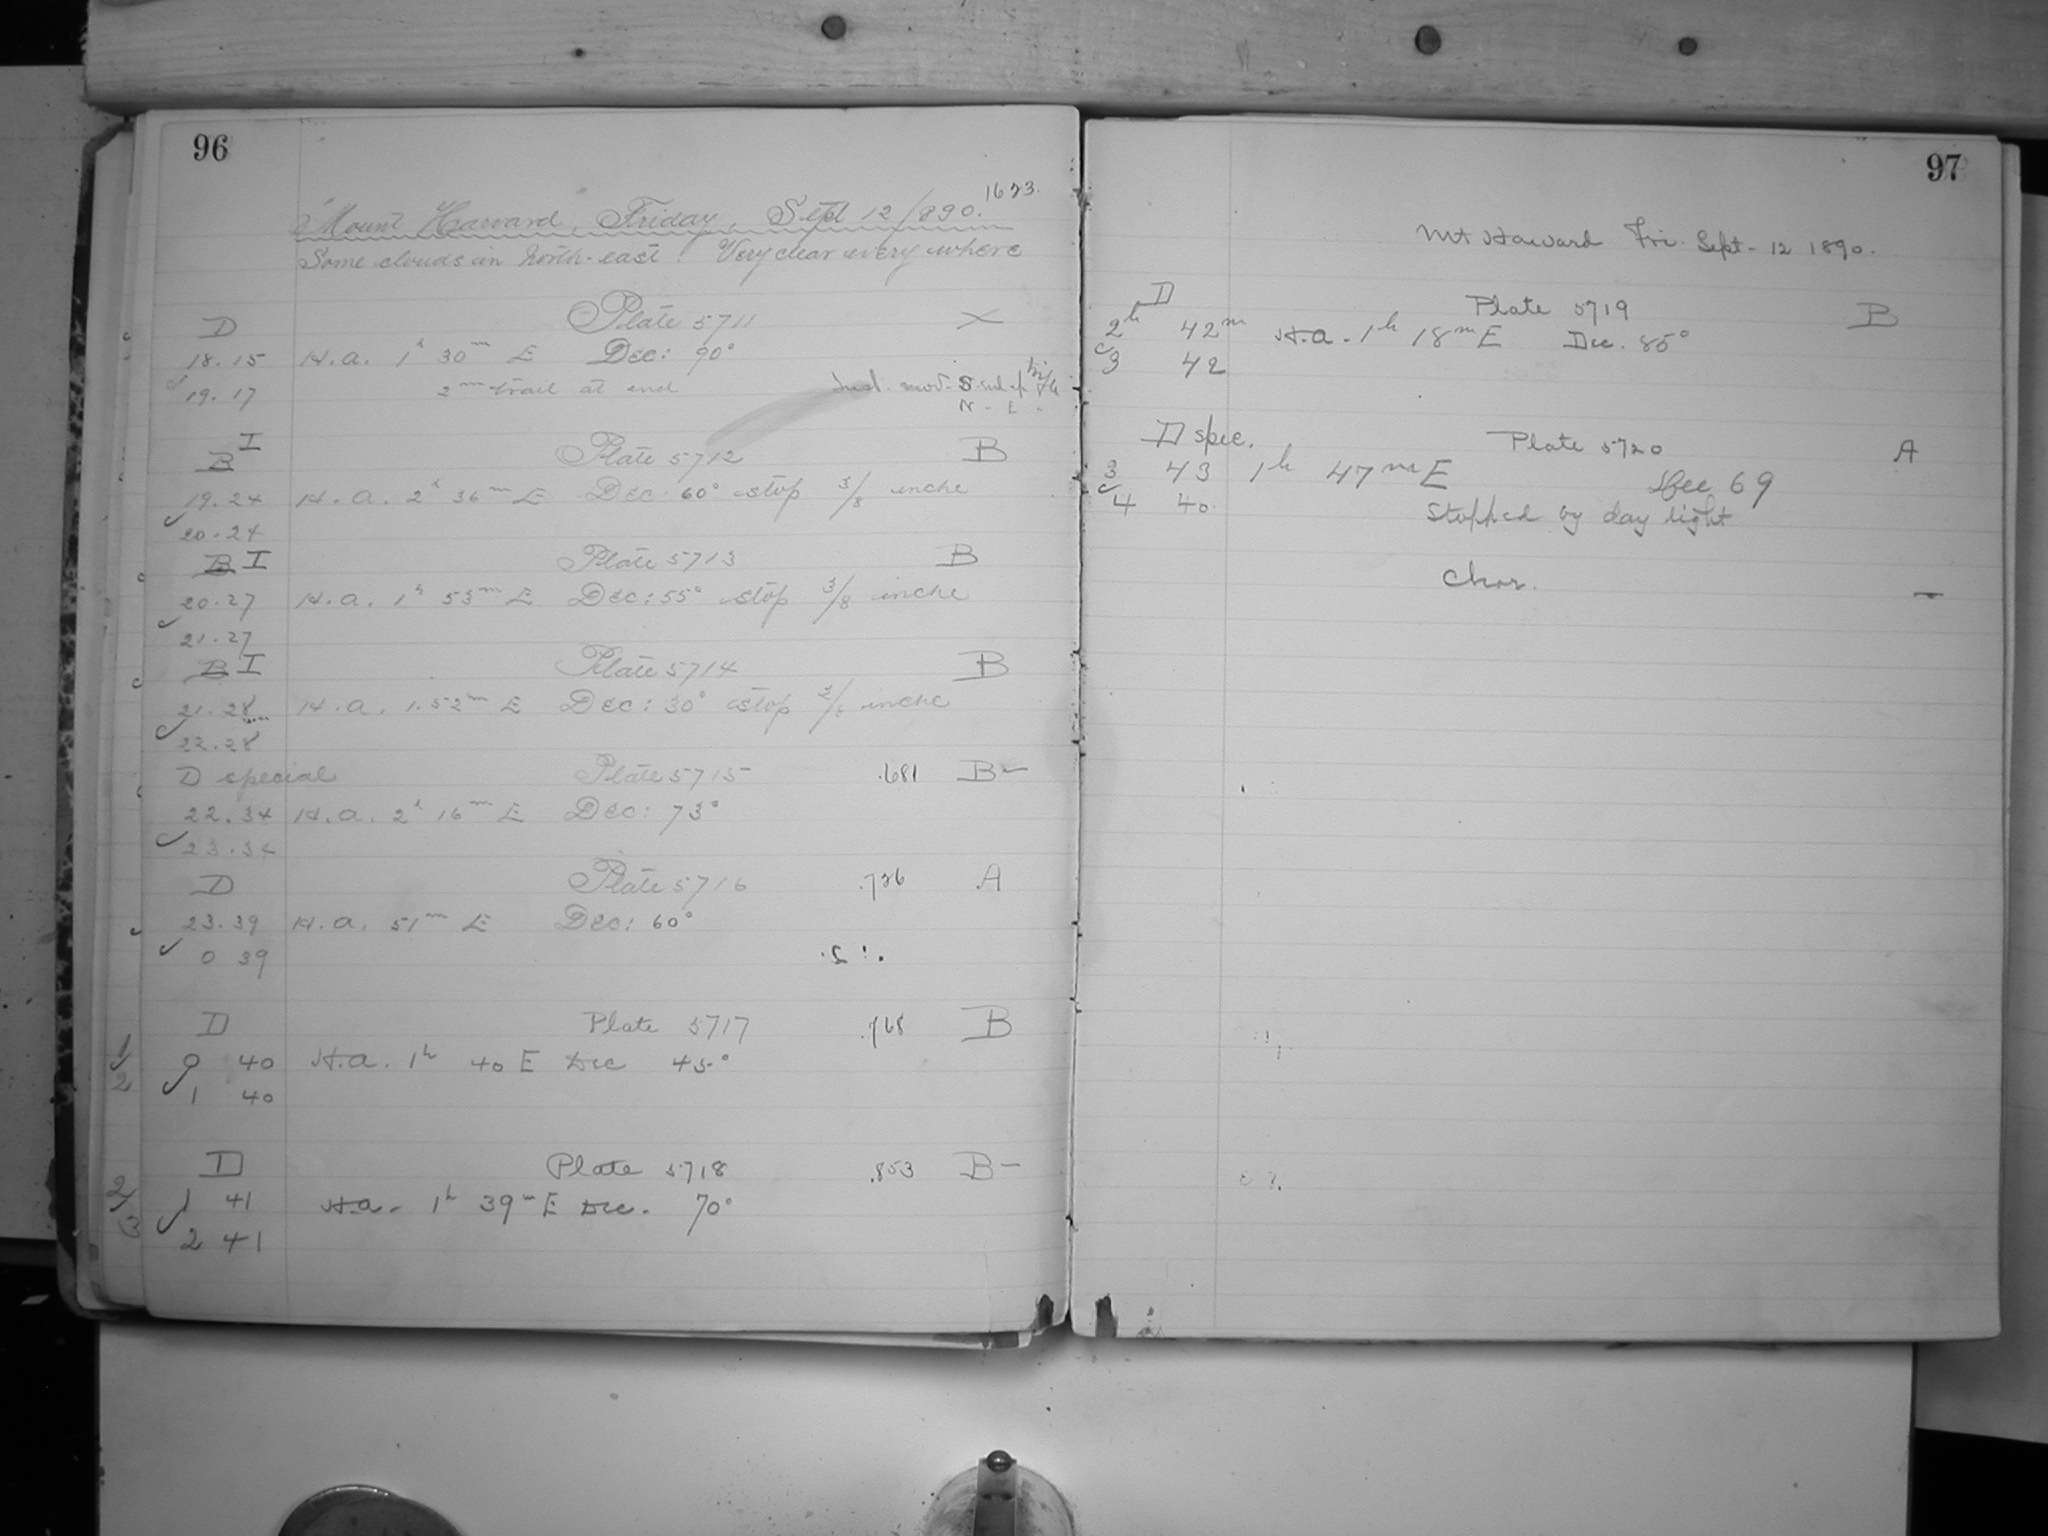 96
1623.
Mount Harvard, Friday, Sept 12/890.
Some clouds in North-east. Very clear every where
D Plate 5711 X
18.15 H.a. 1h 30m E Dec: 90°
19.17 2m trail at end
N - E -
B I Plate 5712 B
19.24 H.a. 2h 36m E Dec: 60° stop 3/8 inche
20.24
B I Plate 5713 B
20.27 H.a. 1h 53m E Dec: 55° stop 3/8 inche
21.27
B I Plate 5714 B
21.28 H.a. 1.52m E Dec: 30° stop inche
22.28
D special Plate 5715 .681 B-
22.34 H.a. 2h 16m E Dec: 73°
23.34
D Plate 5716 .726 A
23.39 H.a. 51m E Dec: 60°
0 39
D Plate 5717 .768 B
1/2 0 40 H.a. 1h 40 E Dec 45°
1 40
D Plate 5718 .853 B-
2/3 1 41 H.a. 1h 39m E Dec. 70°
2 41
97
Mt Harvard Fri. Sept- 12 1890.
D Plate 5719 B
2h 42m H.a. 1h 18m E Dec. 85°
3 42
D spec. Plate 5720 A
3 43 1h 47m E Dec 69
4 40 Stopped by day light